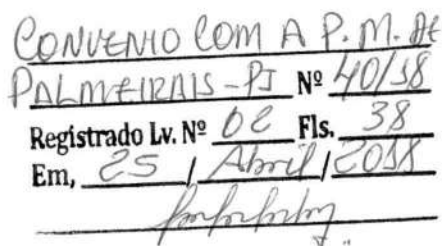 CONVENIO COM A P.M. DE
PALMEIRAIS-PI Nº 40/18
Registrado Lv. Nº 02 Fls. 38
Em, 25 / Abril / 2018